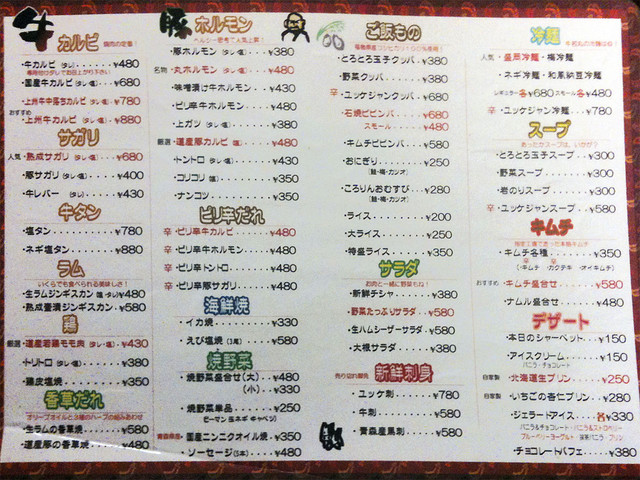 牛 カルビ
焼肉の定番!
・牛カルビ(タレ・塩)・・・¥480
・国産牛カルビ(タレ・塩)・・¥680
・上州牛中落ちカルビ(タレ・塩)・¥780
おすすめ
・上州牛カルビ(タレ・塩)・・¥880
サガリ
人気・熟成サガリ(タレ・塩)・・・¥680
・豚サガリ(タレ・塩)・・・¥400
・牛レバー(タレ・塩)・・・¥430
牛タン
・塩タン・・・・¥780
・ネギ塩タン・・・¥880
ラム
いくらでも食べられる美味しさ!
・生ラムジンギスカン(塩・タレ)¥480
・熟成壷漬ジンギスカン・¥580
鶏
厳選・道産若鶏モモ肉(タレ・塩)・¥430
・トリトロ(タレ・塩)・・・¥380
・鶏皮塩焼・・・¥350
香草だれ
オリーブオイルと3種のハーブの組みあわせ
・生ラムの香草焼・・・¥580
・道産豚の香草焼・・・¥480
豚 ホルモン
・豚ホルモン(タレ・塩)・・・¥380
名物・丸ホルモン(タレ・塩)・・・¥480
・味噌漬け牛ホルモン・・¥430
・ピリ辛牛ホルモン・・・¥480
・上ガツ(タレ・塩)・・・¥380
厳選・道産豚カルビ(塩)・・・¥480
・トントロ(タレ・塩)・・・¥430
・コリコリ(塩)・・・¥350
・ナンコツ・・・¥350
ピリ辛だれ
辛・ピリ辛牛カルビ・・・¥480
辛・ピリ辛牛ホルモン・・・¥480
辛・ピリ辛トントロ・・・¥480
辛・ピリ辛豚サガリ・・・¥480
海鮮焼
・イカ焼・・・¥330
・えび塩焼(3尾)・・・¥580
焼野菜
・焼野菜盛合せ(大)・・・¥480
(小)・・・¥330
・焼野菜単品・・・¥250
(ピーマン 玉ネギ キャベツ)
青森県産・国産ニンニクオイル焼・¥350
・ソーセージ(5本)・・・¥480
ご飯もの
・とろとろ玉子クッパ・・・¥380
・野菜クッパ・・・¥380
辛・ユッケジャンクッパ・・・¥680
・石焼ビビンバ・・・¥680
スモール・・・¥480
・キムチビビンバ・・・¥580
・おにぎり・・・¥250
(鮭・梅・カツオ)
・ころりんおむすび・・・¥280
(鮭・梅・カツオ)
・ライス・・・¥200
・大ライス・・・¥250
・特盛ライス・・・¥350
サラダ
お肉と一緒に野菜もね!
・新鮮チシャ・・・¥380
・野菜たっぷりサラダ・・・¥580
・生ハムシーザーサラダ・・¥580
・大根サラダ・・・¥380
売り切れ御免 新鮮刺身
・ユッケ刺・・・¥780
・牛刺・・・¥580
・青森産馬刺・・・¥580
冷麺
人気・盛岡冷麺・梅冷麺
・ネギ冷麺・和風納豆冷麺
レギュラー各¥680 スモール各¥480
辛・ユッケジャン冷麺・・・¥780
スープ
あったかスープは、いかが?
・とろとろ玉子スープ・・・¥300
・野菜スープ・・・¥300
・岩のりスープ・・・¥300
辛・ユッケジャンスープ・・¥580
キムチ
特定工場で造った本格キムチ
・キムチ各種・・・¥350
(・キムチ ・カクテキ ・オイキムチ)
おすすめ・キムチ盛合せ・・・¥580
・ナムル盛合せ・・・¥480
デザート
・本日のシャーベット・・・¥150
・アイスクリーム・・・¥150
(バニラ・チョコレート)
自家製・北海道生プリン・・・¥250
自家製・いちごの杏仁プリン・・¥280
・ジェラートアイス・・・各¥330
バニラ&チョコレート・バニラ&ストロベリー
ブルーベリーヨーグルト・抹茶バニラ・プリン
・チョコレートパフェ・・・¥380